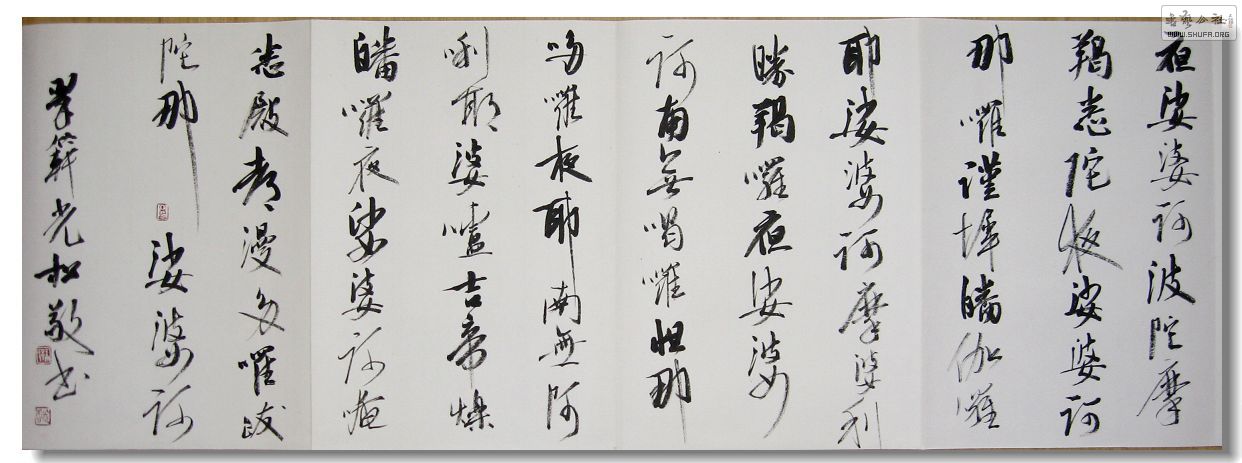 夜娑婆訶波陀摩
羯悉陀夜娑婆訶
那囉謹墀皤伽囉
耶娑婆訶摩婆利
勝羯囉夜娑婆
訶南無喝囉怛那
哆囉夜耶南無阿
唎耶婆嚧吉帝爍
皤囉夜娑婆訶唵
悉殿都漫多囉跋
陀那 娑婆訶
光松敬书
书艺公社
WWW.SHUFA.ORG